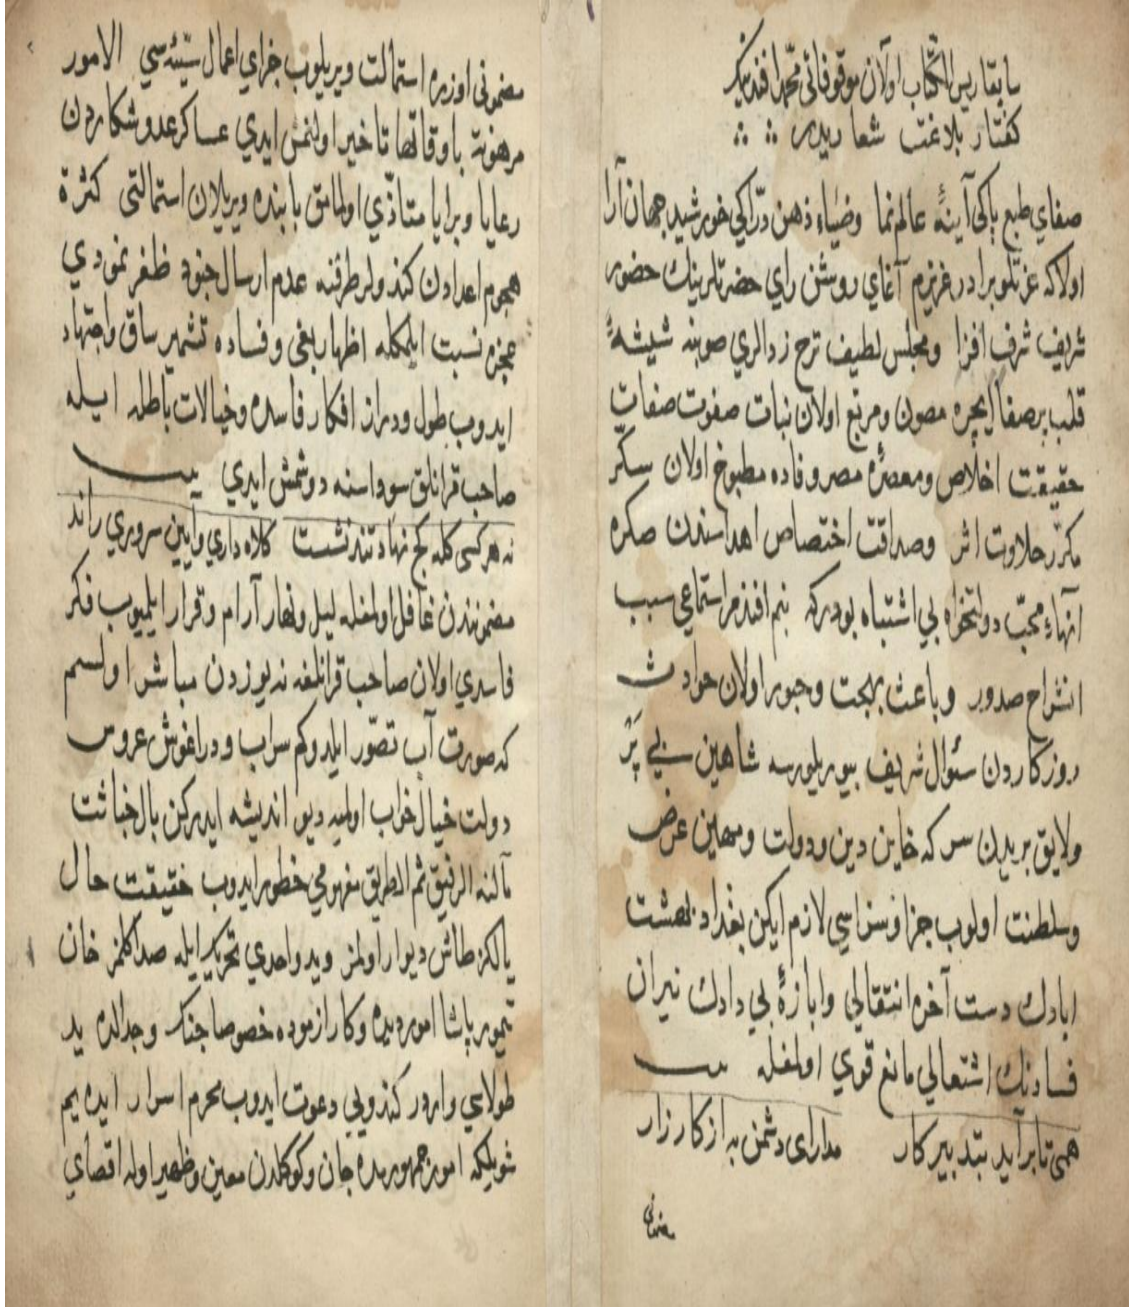 سابقا رئيس الكتاب اولان موقوفاتى محمد افندينك
كفتار بلاغت شعاريدر
صفاي طبع پاكى آيينهٔ عالم نما وضياء ذهن درّاكى خورشيد جهان آرا
اولاكه عزتلو برادر عزيزم آغاي روشن راي حضرتلرينك حضور
شريف شرف افزا ومجلس لطيف ترح زدالري صوبنه شيشهٔ
قلب پرصفا ايچره مصون ومربع اولان نبات صفوت صفات
حقيقت اخلاص ومعصرهٔ مصر وفاده مطبوخ اولان سكّر
مكرّر حلاوت اثر وصداقت اختصاص اهداسندن صكره
انهاء محبّ دولتخواه بي اشتباه بودركه بنم افندم استماعي سبب
انشراح صدور وباعث بهجت وحبور اولان حوادث
روزكاردن سئوال شريف بيوريلورسه شاهين بي پر
ولايق بريدن سر كه خاين دين ودولت ومهين عرض
وسلطنت اولوب جزا وسزاسي لازم ايكن بغداد بهشت
ابادك دست آخره انتقالي وابازهٔ بي دادك نيران
فسادنك اشتعالي مانع قوي اولمغله بيت
همى تا برآيد بتدبير كار مداراى دشمن به از كارزار
مضمونى
مضمونى اوزره استمالت ويريلوب جزاي اعمال سيّئه سي الامور
مرهونة باوقاتها تاخير اولنمش ايدي عساكر عدو شكاردن
رعايا وبرايا متاذّي اولمامق بابنده ويريلان استمالتى كثرة
هجوم اعدادن كندولر طرفنه عدم ارسال جنود ظفر نمودي
عجزه نسبت ايلمكله اظهار بغى وفساده تشمير ساق واجتهاد
ايدوب طول ودراز افكار فاسده وخيالات باطله ايله
صاحب قرانلق سوداسنه دوشمش ايدي بيت
نه هركسى كله كج نهاد وتند نشست كلاه داري وايين سروري راند
مضمونندن غافل اولمغله ليل ونهار آرام وقرار ايلميوب فكر
فاسدي اولان صاحب قرانلغه نه يوزدن مباشر اولسم
كه صورت آب تصوّر ايلدوكم سراب ودر اغوش عروس
دولت خيال خواب اولميه ديو انديشه ايدركن بال خباثت
مآلنه الرفيق ثم الطريق مفهومي خطور ايدوب حقيقت حال
يالكز طاش ديوار اولمز ويد واحدي تحريك ايله صدا كلمز خان
تيمور پاشا امورديده وكار ازموده خصوصا جنك وجدالده يد
طولاسي واردر كندويى دعوت ايدوب محرم اسرار ايده يم
شويلكه امور جمهورمده جان وكوكلدن معين وظهير اوله اقصاي